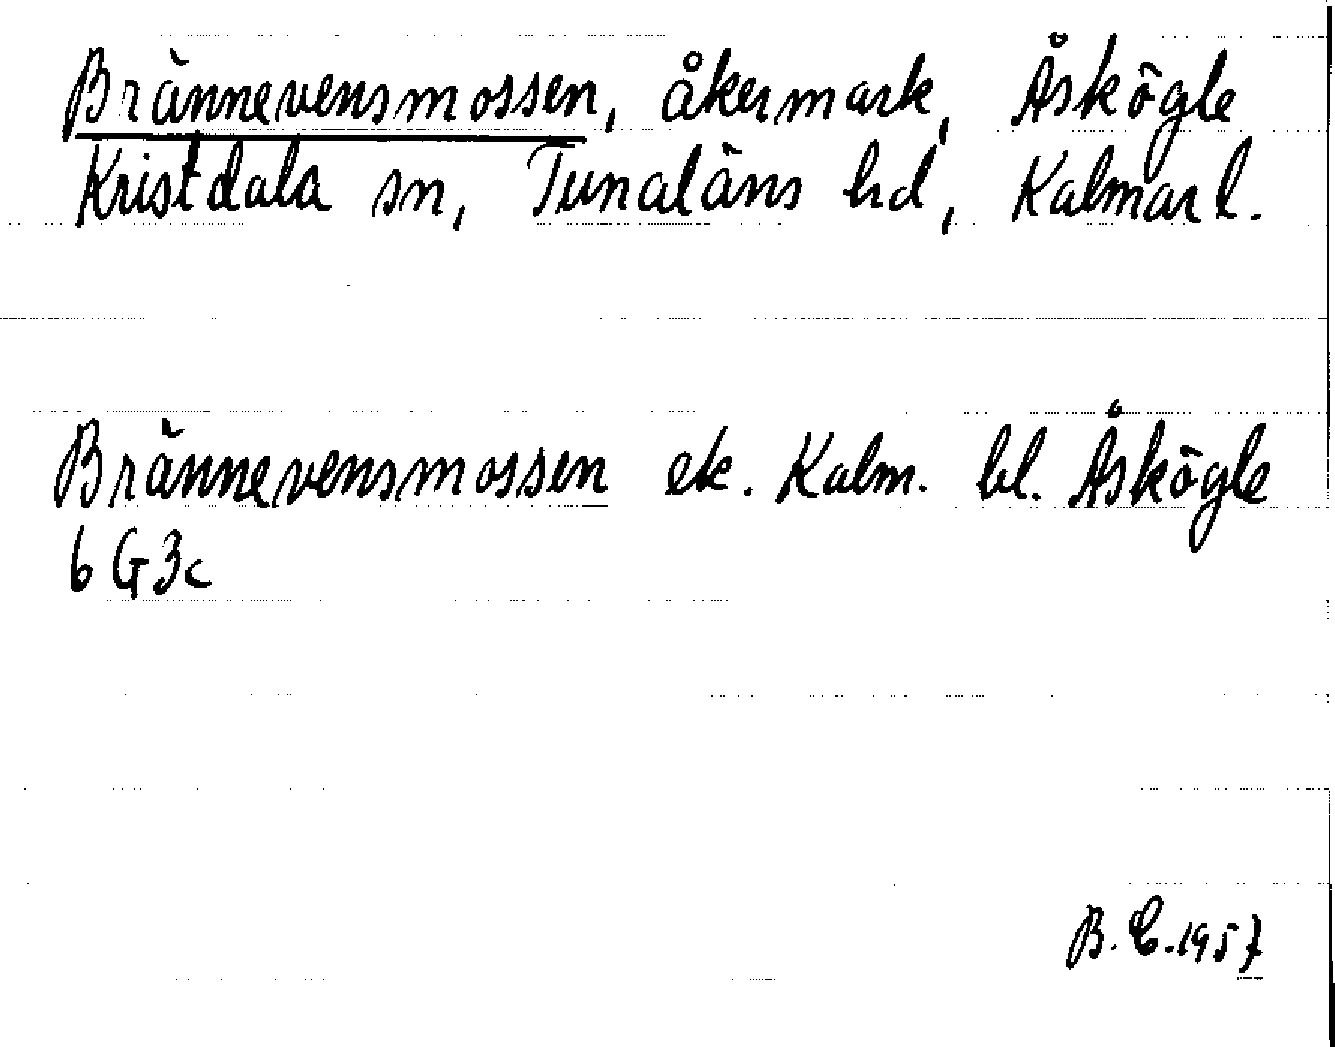 Brännevensmossen, åkermark, Åskögle
Kristdala sn, Tunaläns hd, Kalmar l.
Brännevensmossen ek. Kalm. bl. Åskögle
6 G3c
B. C. 1957